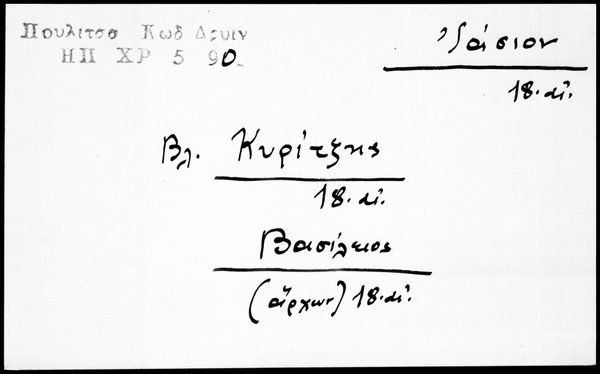 Πουλιτσα Κωδ Δρυιν
ΗΠ ΧΡ 5 90.
Ἰάσιον
18. αἰ.
Βλ. Κυρίτζης
18. αἰ.
Βασίλειος
(ἄρχων) 18. αἰ.